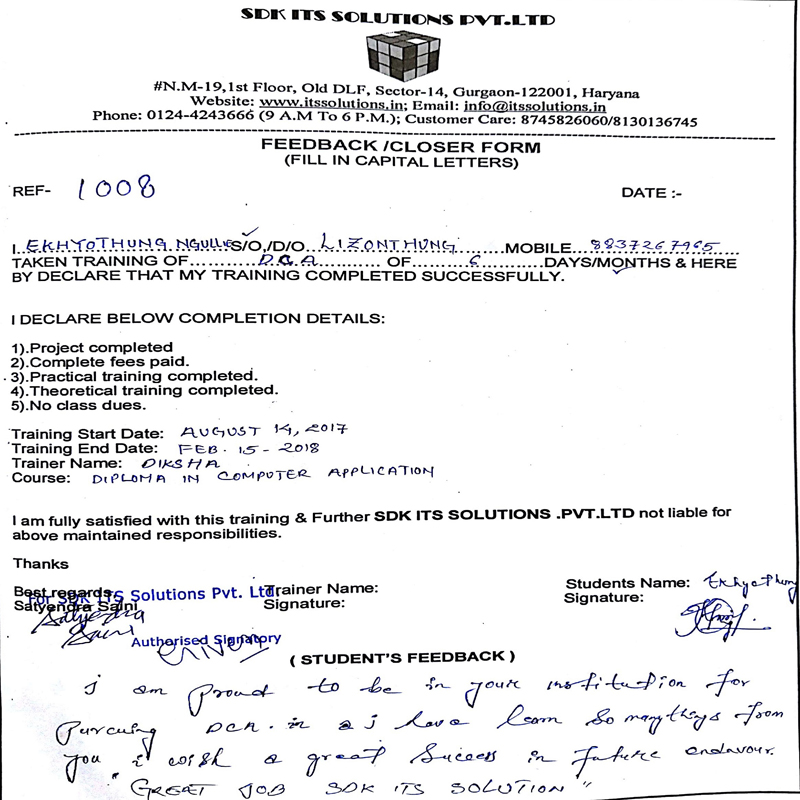 SDK ITS SOLUTIONS PVT.LTD
#N.M-19,1st Floor, Old DLF, Sector-14, Gurgaon-122001, Haryana
Website: www.itssolutions.in; Email: info@itssolutions.in
Phone: 0124-4243666 (9 A.M To 6 P.M.); Customer Care: 8745826060/8130136745
FEEDBACK /CLOSER FORM
(FILL IN CAPITAL LETTERS)
REF- 1008 DATE :-
I EKHYOTHUNG NGULLIE S/O,/D/O. LIZONTHUNG MOBILE 8837267965
TAKEN TRAINING OF DCA OF 6 DAYS/MONTHS & HERE
BY DECLARE THAT MY TRAINING COMPLETED SUCCESSFULLY.
I DECLARE BELOW COMPLETION DETAILS:
1).Project completed
2).Complete fees paid.
3).Practical training completed.
4).Theoretical training completed.
5).No class dues.
Training Start Date: AUGUST 14, 2017
Training End Date: FEB. 15 - 2018
Trainer Name: DIKSHA
Course: DIPLOMA IN COMPUTER APPLICATION
I am fully satisfied with this training & Further SDK ITS SOLUTIONS .PVT.LTD not liable for
above maintained responsibilities.
Thanks
Best regards Trainer Name: Students Name: Ekhyothung
For SDK ITS Solutions Pvt. Ltd.
Satyendra Saini Signature: Signature:
Satyendra
Saini
Authorised Signatory
( STUDENT'S FEEDBACK )
I am proud to be in your institution for
Purcuing DCA. in I have learn so many things from
you i wish a great success in future endavour.
"GREAT JOB SDK ITS SOLUTION"